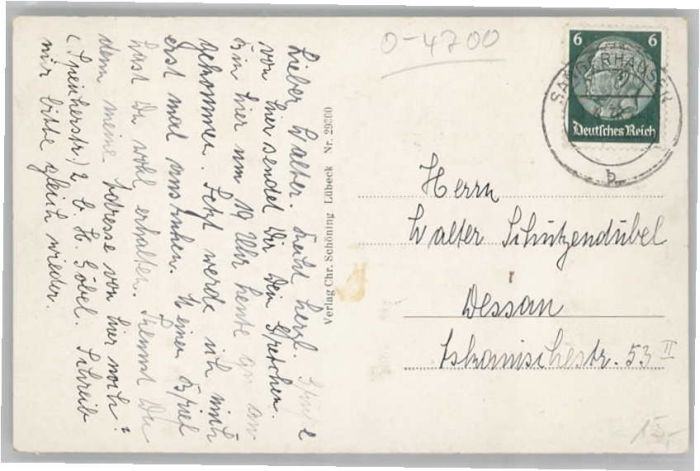 Lieber Walter. Recht herzl. Grüße
von hier sendet Dir Dein
Bin hier um 19 Uhr heute
gekommen. Jetzt werde ich mich
erst mal ausruhen. Meinen Brief
hast Du wohl erhalten. Kennst Du
denn meine Adresse von hier noch?
(Speicherstr.) 2 b. H. Göbel. Schreib
mir bitte gleich wieder.
Verlag Chr. Schöning Lübeck Nr. 29200
0-4700
6 6
Deutsches Reich
SANGERHAUSEN
b
Herrn
Walter Schützendübel
Dessau
Askanischestr. 53 II
15,-